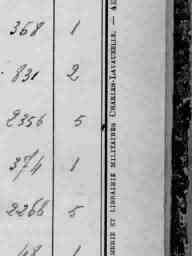 368 1
831 2
2356 5
374 1
2266 5
48 1
ERIE ET LIBRAIRIE MILITAIRES CHARLES-LAVAUZELLE. —